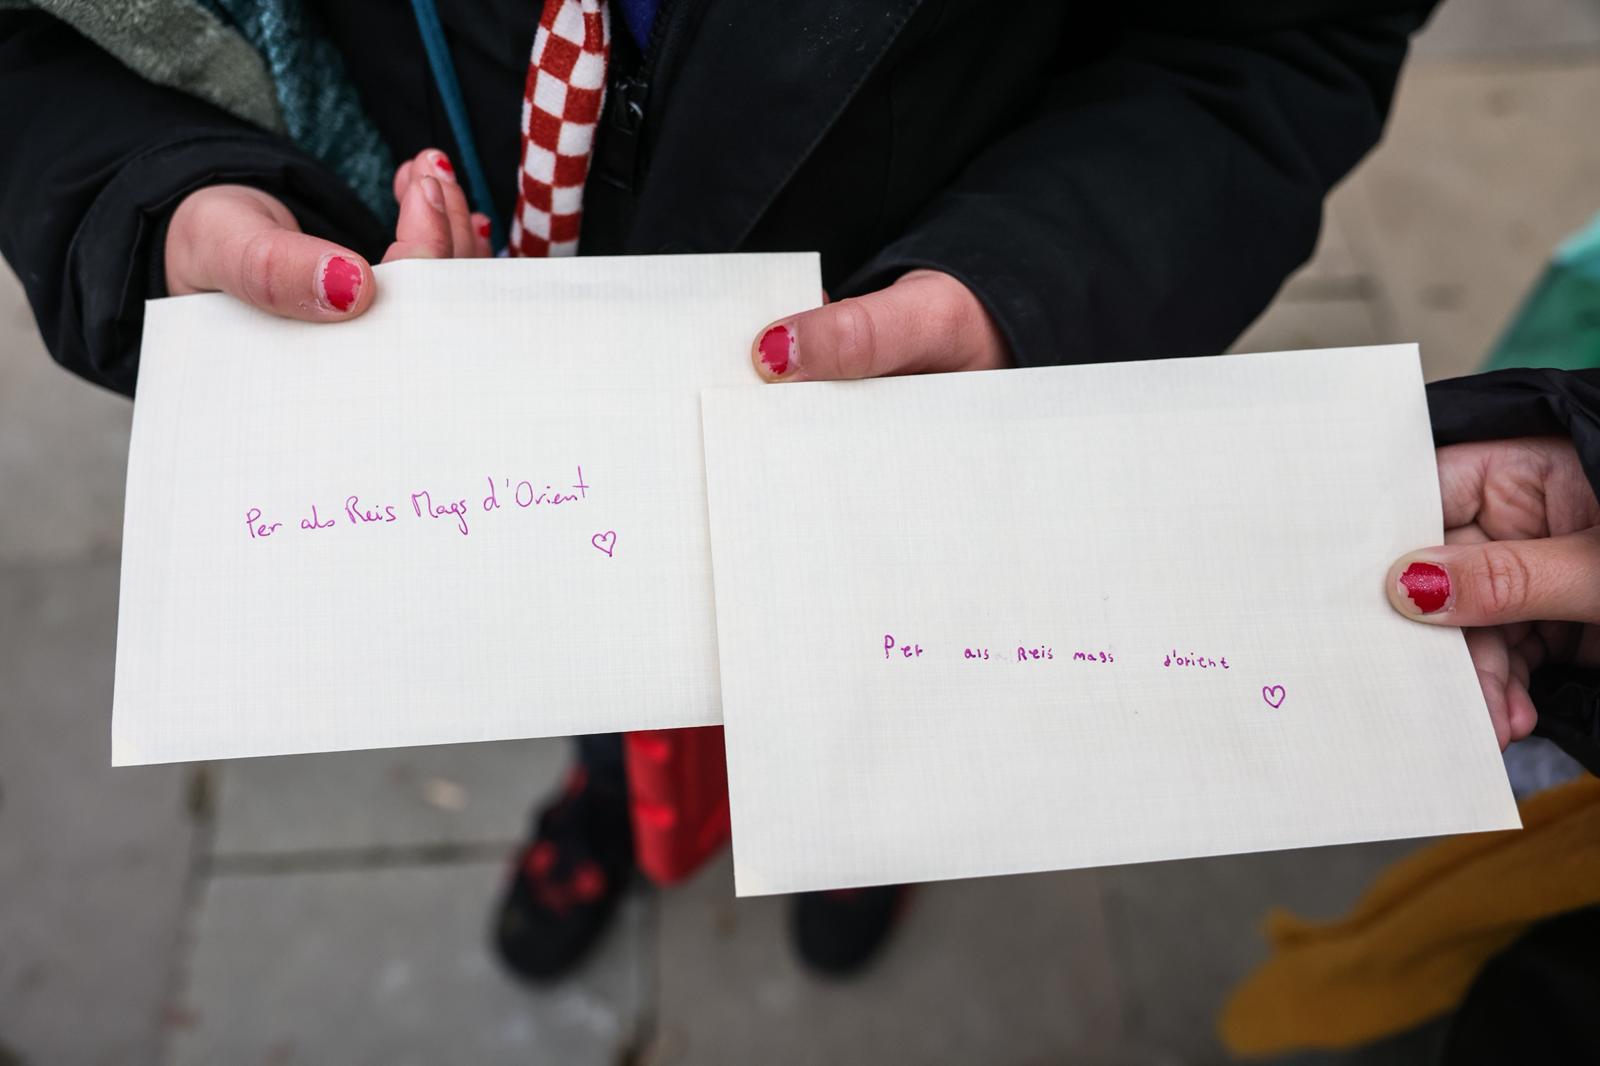 Per als Reis Mags d'Orient
♡
Per als Reis mags d'orient
♡